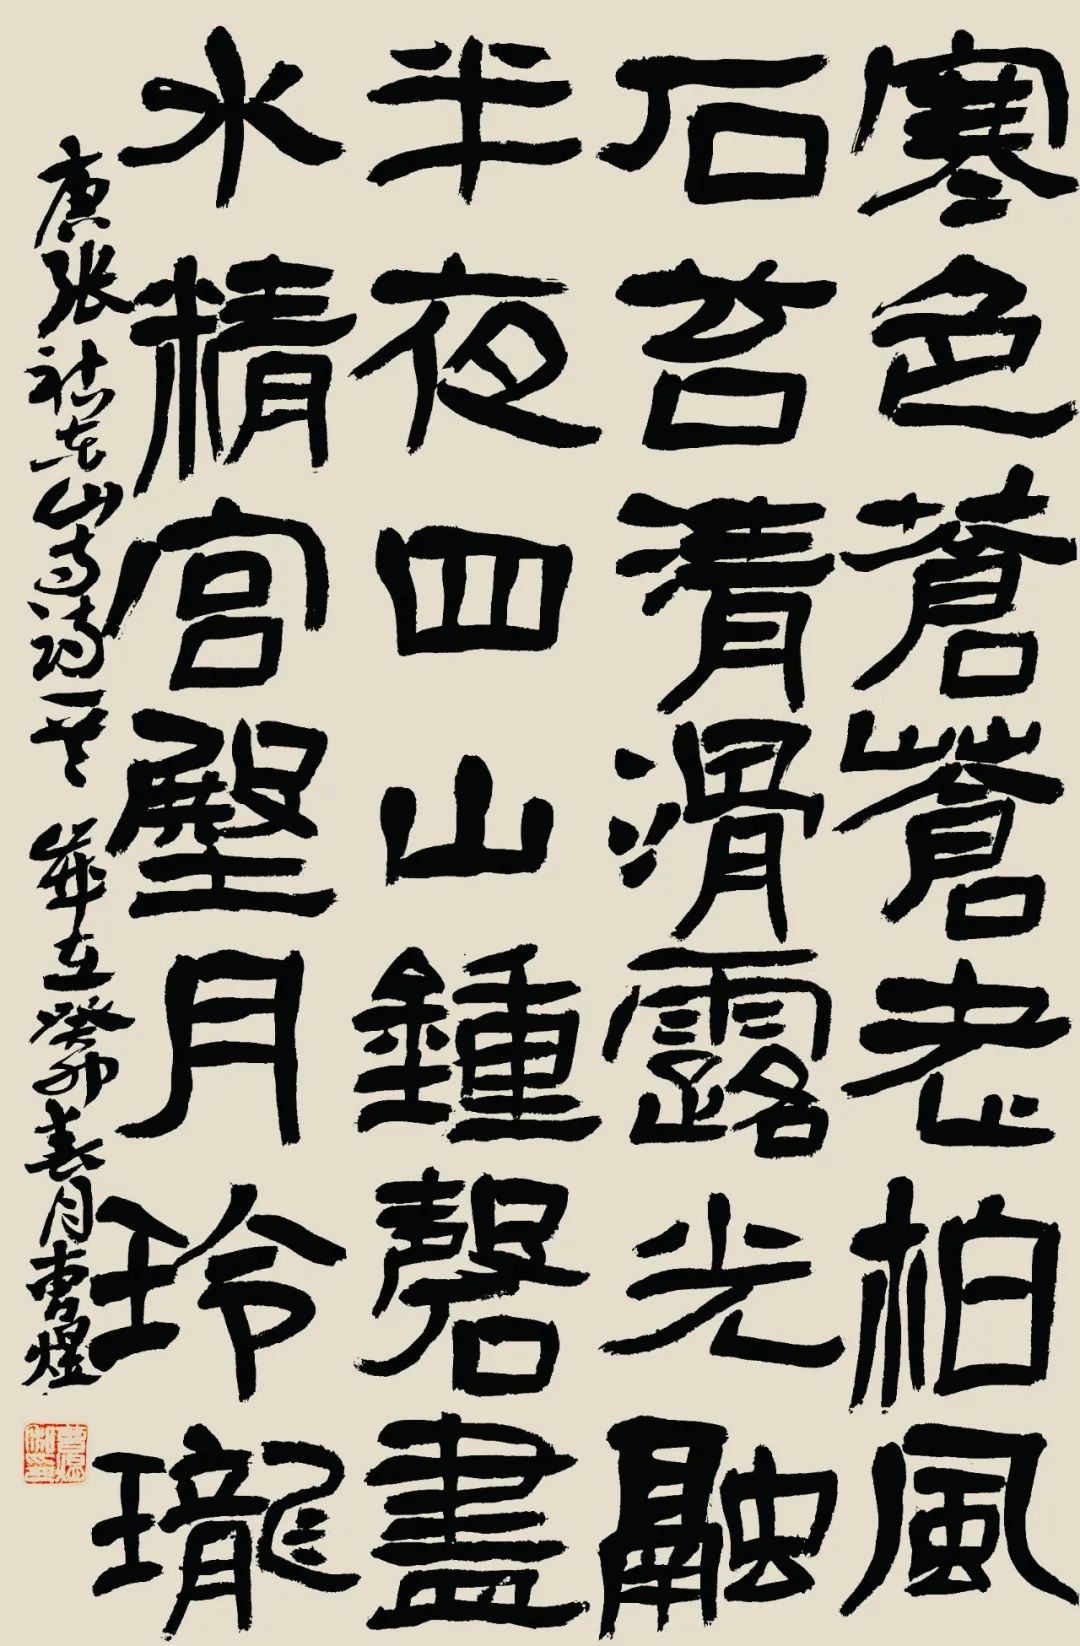 寒色蒼蒼老柏風
石苔清滑露光融
半夜四山鍾磬盡
水精宮殿月玲瓏
唐張祜東山寺詩一首 歲在癸卯春月曹煜